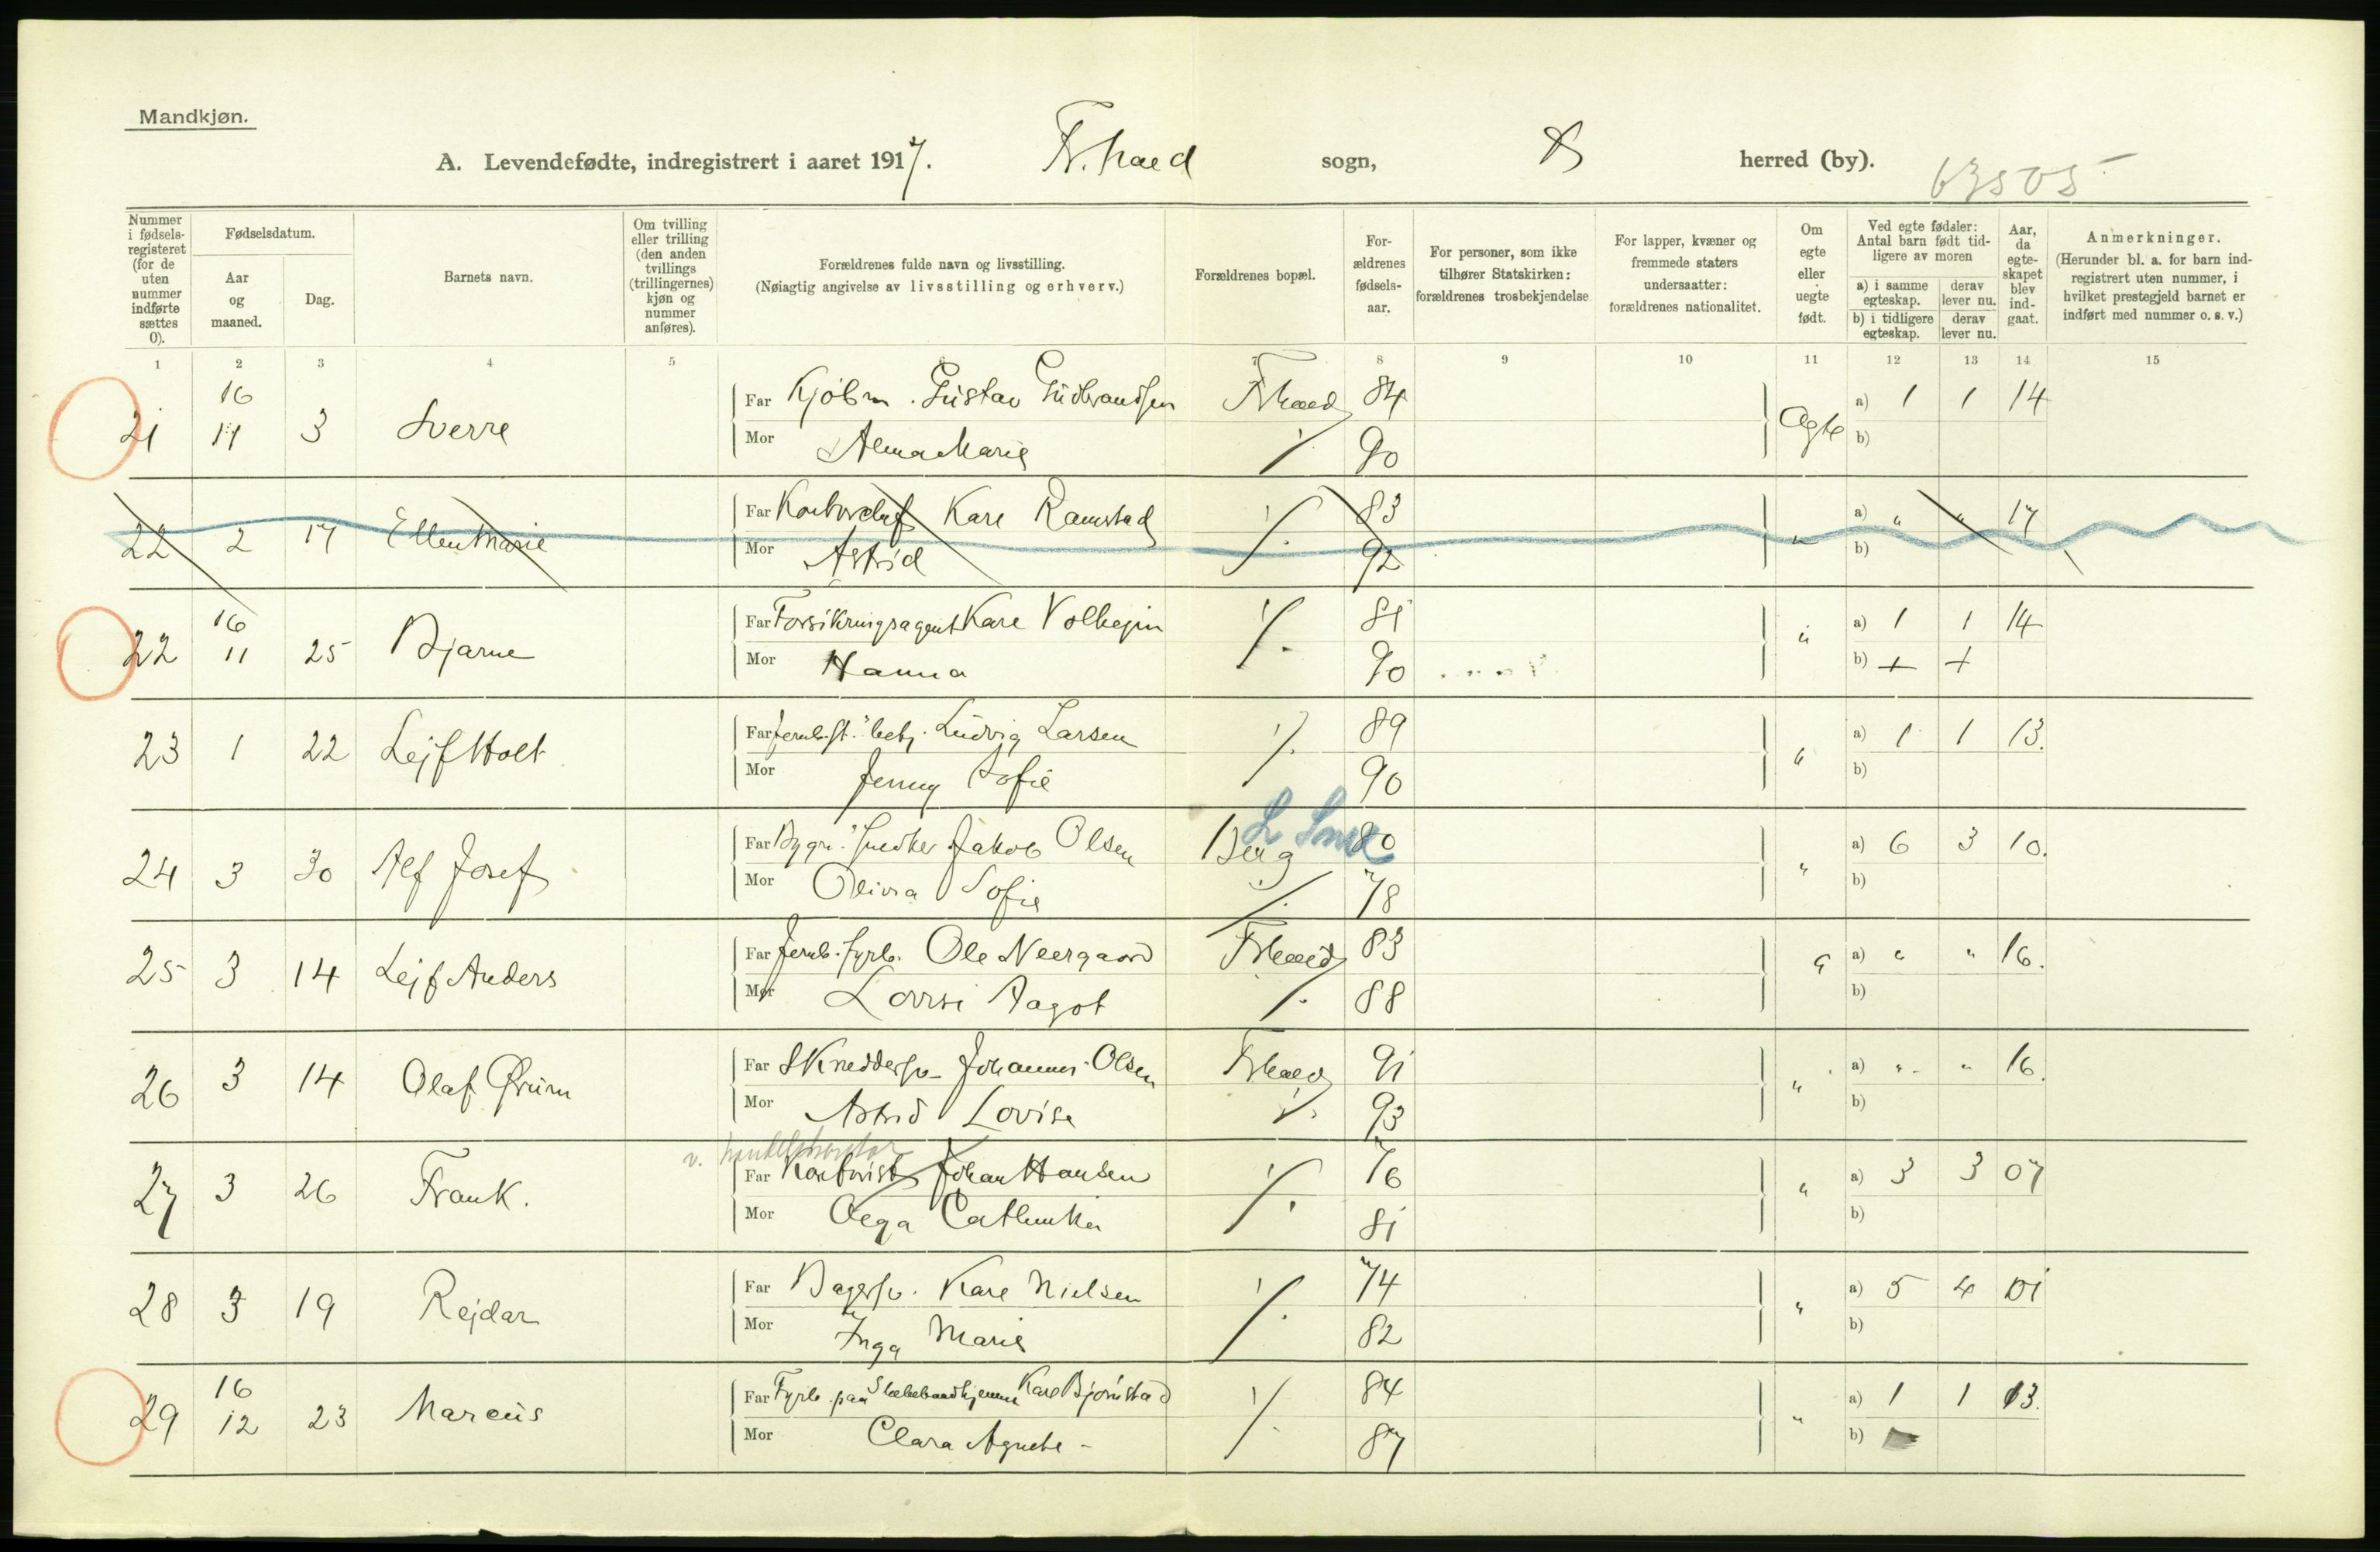 Mandkjøn.
A. Levendefødte, indregistrert i aaret 1917. Fr.hald sogn, herred (by).
63505
Nummer i fødselsregisteret (for de uten nummer indførte sættes 0).
Fødselsdatum.
Aar og maaned.
Dag.
Barnets navn.
Om tvilling eller trilling (den anden tvillings (trillingernes) kjøn og nummer anføres).
Forældrenes fulde navn og livsstilling.
(Nøiagtig angivelse av livsstilling og erhverv.)
Forældrenes bopæl.
Forældrenes fødselsaar.
For personer, som ikke tilhører Statskirken: forældrenes trosbekjendelse
For lapper, kvæner og fremmede staters undersaatter: forældrenes nationalitet.
Om egte eller uegte født.
Ved egte fødsler: Antal barn født tidligere av moren
a) i samme egteskap. derav lever nu.
b) i tidligere egteskap. derav lever nu.
Aar, da egteskapet blev indgaat.
Anmerkninger.
(Herunder bl. a. for barn indregistrert uten nummer, i hvilket prestegjeld barnet er indført med nummer o. s. v.)
1 2 3 4 5 6 7 8 9 10 11 12 13 14 15
21 16 11 3 Sverre Far Kjøbm. Gustav Gudbrandsen Frhald 84 Ægte a) 1 1 14
Mor Alma Marie ⁒ 90 b)
22 2 17 Ellen Marie Far Kontorchef Karl Ramstad ⁒ 83 " a) " " 17
Mor Astrid 92 b)
22 16 11 25 Bjarne Far Forsikringsagent Karl ⁒ 81 " a) 1 1 14
Mor Hanna 90 b) + +
23 1 22 Lejf Holt Far Jernb.st. betj. Ludvig Larsen ⁒ 89 " a) 1 1 13.
Mor Jenny Sofie 90 b)
24 3 30 Alf Josef Far Bygn. Snedker Jakob Olsen Berg 80 " a) 6 3 10.
Mor Olivia Sofie ⁒ 78 b)
25 3 14 Lejf Anders Far Jernb. fyrb. Ole Neergaard Frhald 83 " a) " " 16.
Mor Lovise Aagot ⁒ 88 b)
26 3 14 Olaf Ørum Far Skreddersv. Johannes Olsen Frhald 91 " a) " " 16.
Mor Astrid Lovise ⁒ 93 b)
27 3 26 Frank. Far Kontorist Johan Hansen ⁒ 76 " a) 3 3 07
Mor Olga Cathinka 81 b)
28 3 19 Rejdar Far Bagersv. Karl Nielsen ⁒ 74 " a) 5 4 01
Mor Inga Marie 82 b)
29 16 12 23 Marcus Far Fyrb. paa Karl Bjørnstad ⁒ 84 " a) 1 1 13.
Mor Clara Agnethe - 87 b)